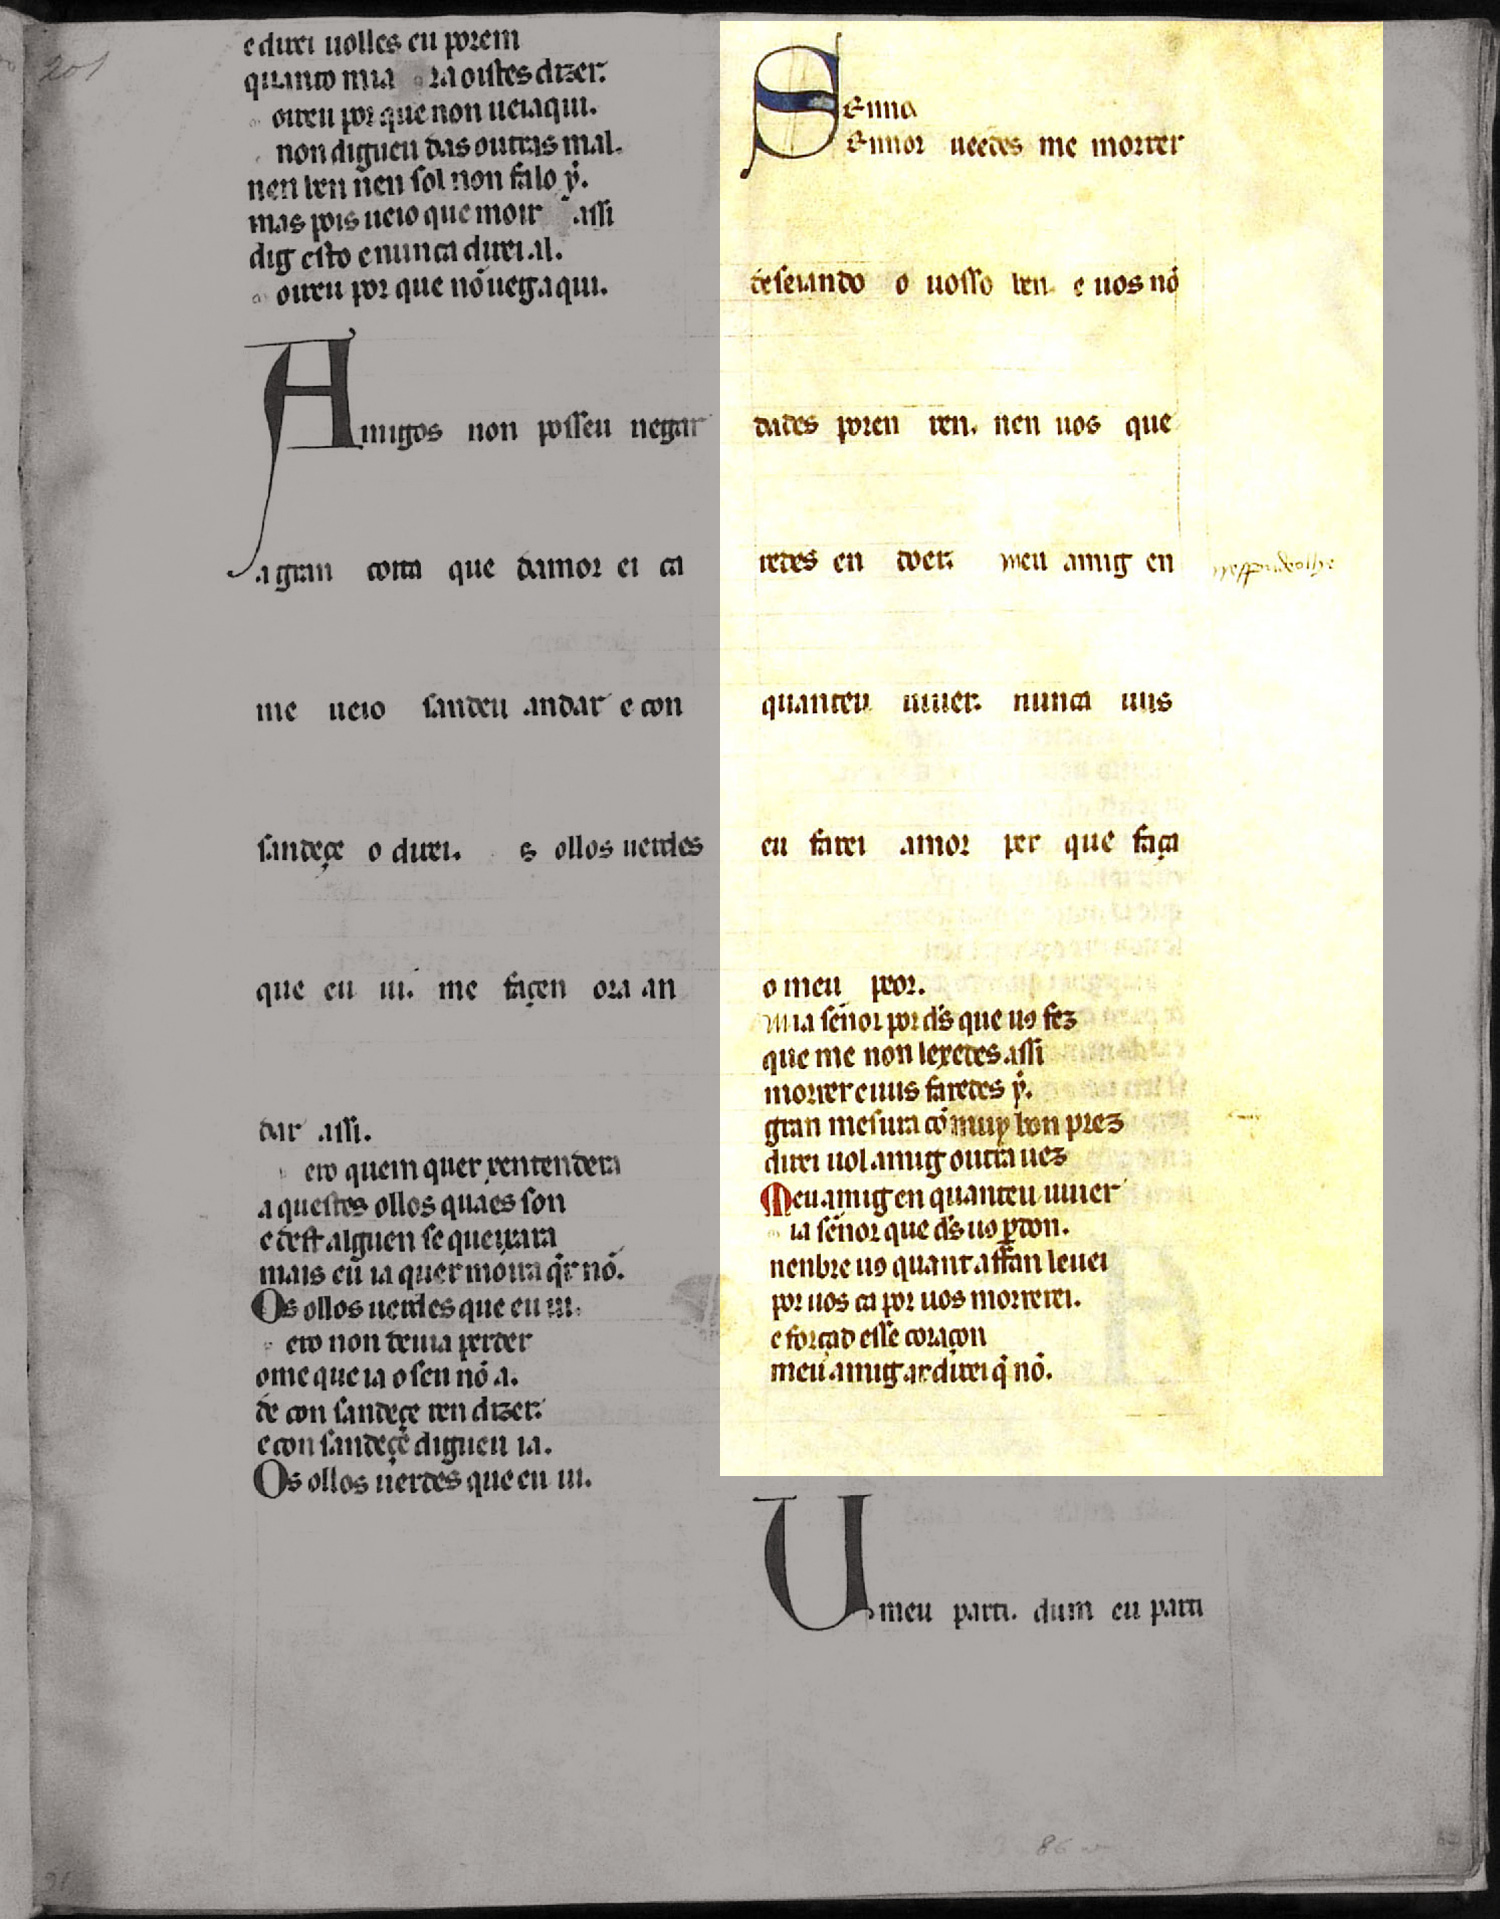 201
e direi uolles eu porem
quanto mia ra oistes dizer.
oireu por que non ueiaqui.
non digueu das outras mal.
nen ben nen sol non falo ẏ.
mas pois ueio que moir assi
dig esto e nunca direi.al.
oireu por que nõ ueg.aqui.
Amigos non posseu negar
a gran coita que damor ei ca
me ueio sandeu andar e con
sandeçe o direi. s ollos uerdes
que eu ui. me façen ora an
dar assi.
ero quem quer xentendera
aquestes ollos quaes son
e dest alguen se queixara
mais eu ia quer moira q̃r nõ.
Os ollos uerdes que eu ui.
ero non deuia perder
ome que ia o sen nõ a.
de con sandeçe ren dizer.
e con sandeçe digueu ia.
Os ollos uerdes que eu ui.
Senna
Sennor ueedes me morrer
deseiando o uosso ben e uos nõ
dades poren ren. nen uos que
redes en doer. meu amig en
rrespondeolhe
quanteu uiuer. nunca uus
eu farei amor per que faça
o meu peor.
mia señor por d̃s que uꝯ fez
que me non leyxedes assi
morrer e uus faredes ẏ.
gran mesura cõ muy bon prez
direi uol.amig outra uez
Meu.amig en quanteu uiuer
ia señor que d̃s uꝯ ꝑdon.
nenbre uꝯ quant affan leuei
por uos ca por uos morrerei.
e forçad esse coraçon
meu.amig ar direi q̃ nõ.
U meu parti. dum eu parti
86